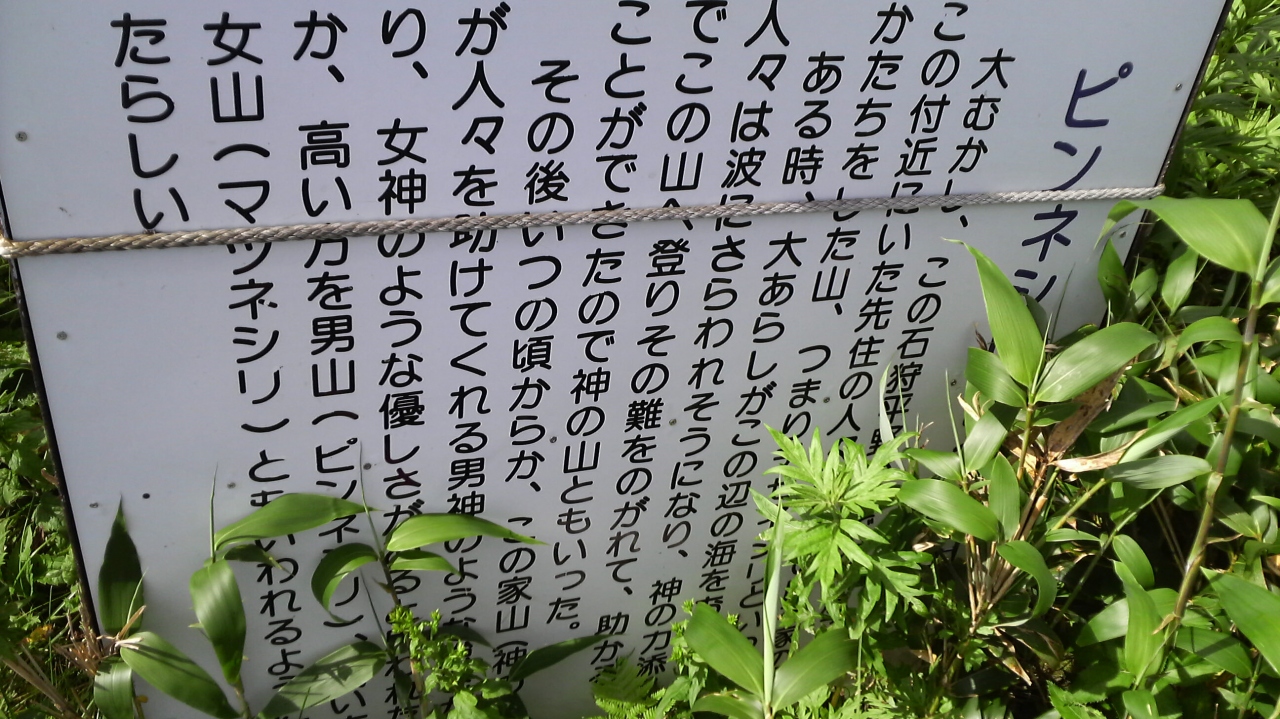 ピンネシ
大むかし、この石狩平野
この付近にいた先住の人
かたちをした山、つまり
ある時、大あらしがこの辺の海を
人々は波にさらわれそうになり、神の力添
でこの山へ登りその難をのがれて、助か
ことができたので神の山ともいった。
その後いつの頃からか、この家山(神
が人々を助けてくれる男神のような
り、女神のような優しさがある
か、高い方を男山(ピンネシリ)、
女山(マツネシリ)ともいわれるよ
たらしい